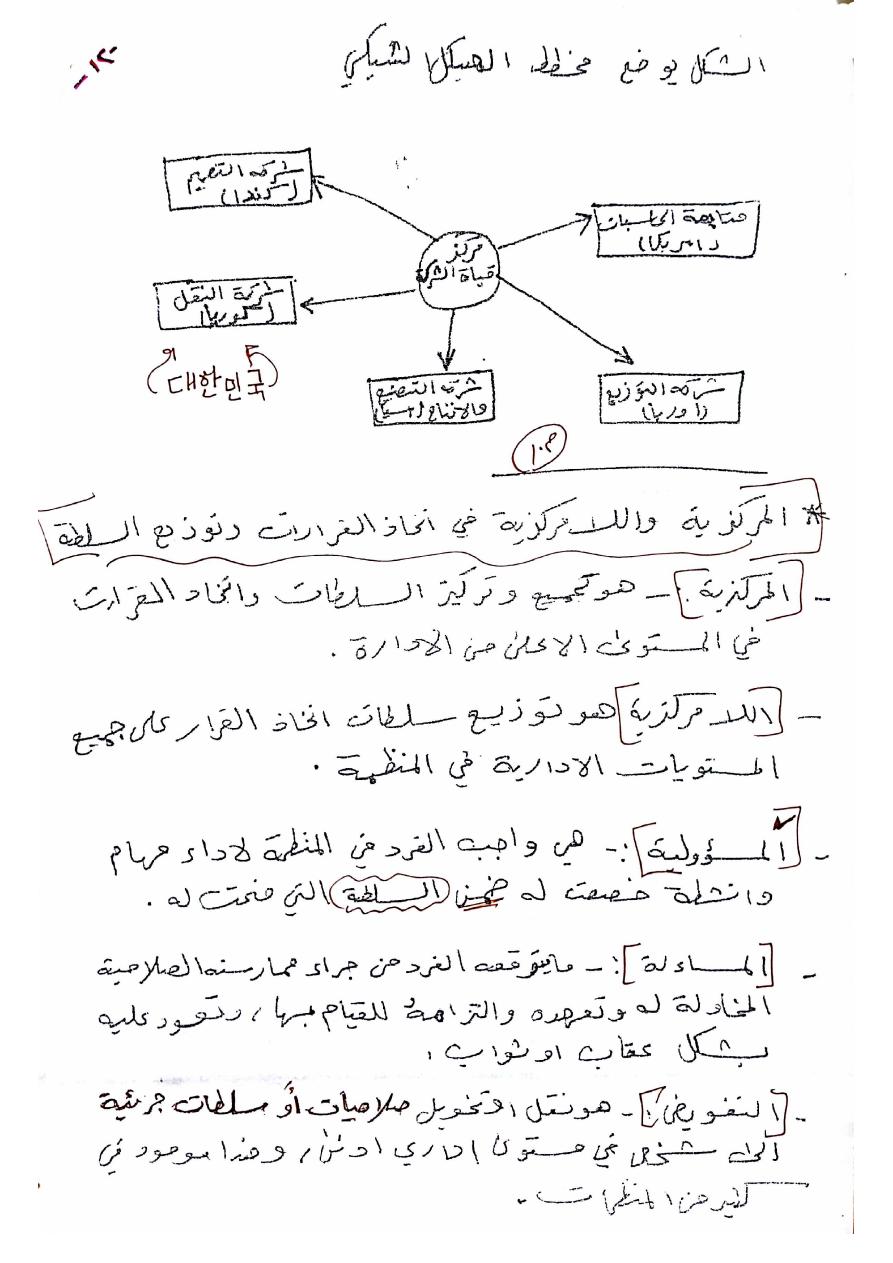 الشكل يوضح مخطط الهيكل الشبكي
-١٢-
شركة التصميم
(كندا)
متابعة الحاسبات
(امريكا)
مركز
قيادة الشركة
شركة النقل
(كوريا)
(대한민국)
شركة التصنيع
والانتاج (اسيا)
شركة التوزيع
(اوربا)
م.١
* المركزية واللامركزية في اتخاذ القرارات وتوزيع السلطة
- [المركزية :] - هو تجميع وتركيز السلطات واتخاذ القرارات
في المستوى الاعلى من الادارة .
- [اللامركزية] هو توزيع سلطات اتخاذ القرار على جميع
المستويات الادارية في المنظمة .
- [المسؤولية] :- هي واجب الفرد في المنظمة لاداء مهام
وانشطة خصصت له ضمن (السلطة) التي منحت له .
- [المساءلة] :- مايتوقعه الفرد من جراء ممارسته الصلاحية
المخاولة له وتعهده والتزامهُ للقيام بها , وتعود عليه
بشكل عقاب او ثواب .
- [التفويض :] - هو نقل او تخويل صلاحيات أو سلطات جزئية
الى شخص في مستوى اداري ادنى , وهذا موجود في
كثير من المنظمات .